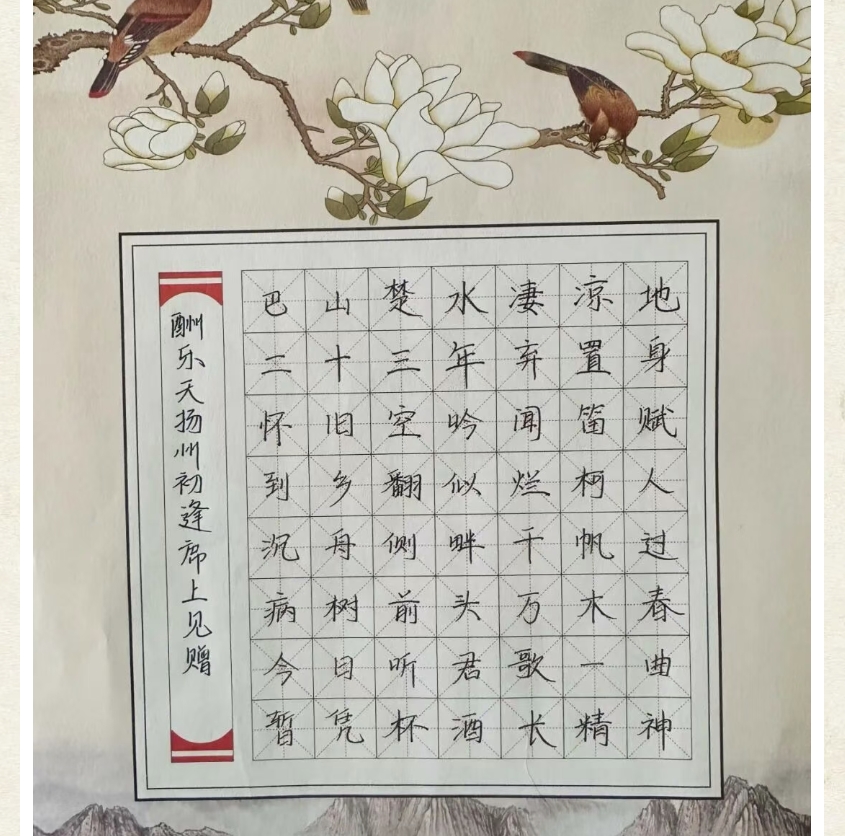 酬乐天扬州初逢席上见赠
巴山楚水凄凉地
二十三年弃置身
怀旧空吟闻笛赋
到乡翻似烂柯人
沉舟侧畔千帆过
病树前头万木春
今日听君歌一曲
暂凭杯酒长精神